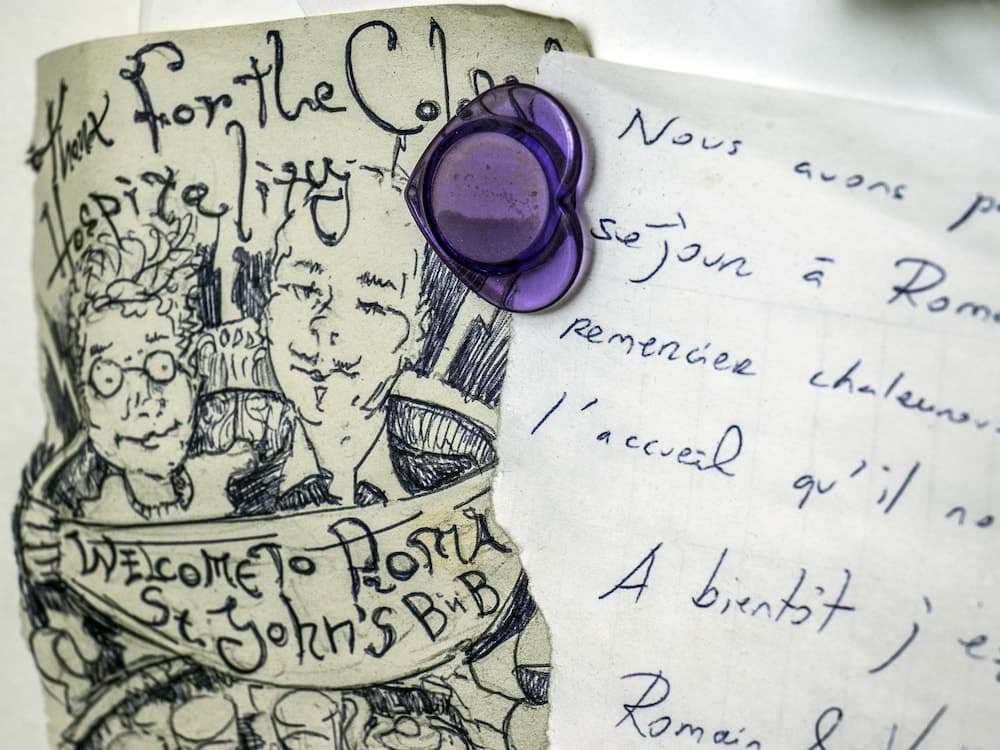 thanx For the
Hospitality
WELCOME TO ROMA
St. John's BnB
Nous avons
séjour à
remercier
l'accueil qu'il
A bientôt j'
Romain &